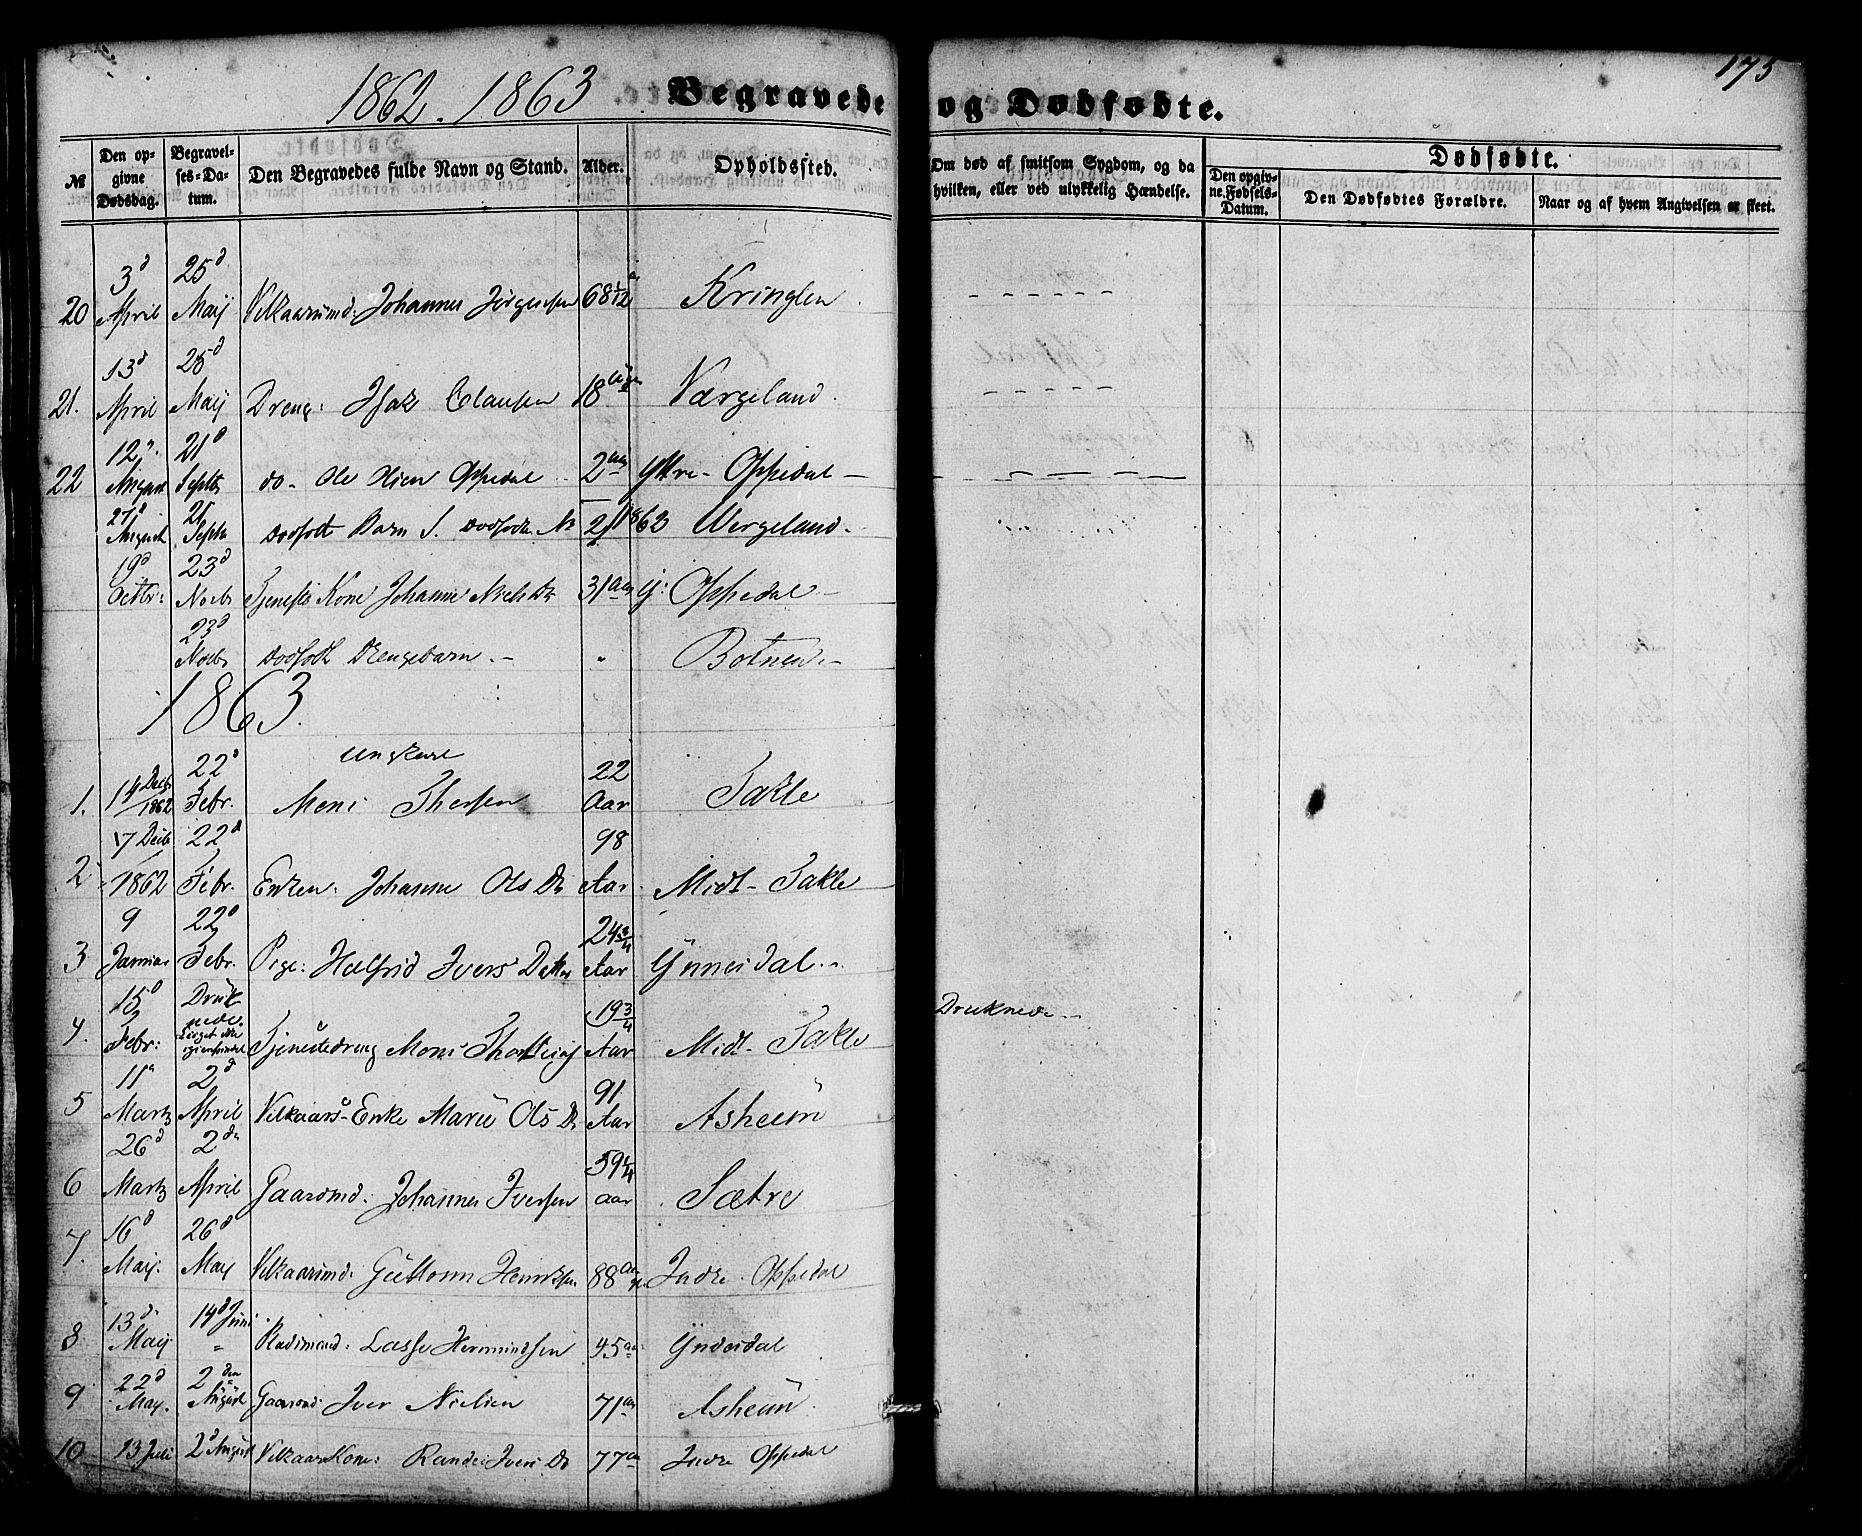 175
1862. 1863 Begravede og Dødfødte.
№ Den opgivne Dødsdag. Begravelses-Datum. Den Begravedes fulde Navn og Stand. Alder. Opholdssted. Om død af smitsom Sygdom, og da hvilken, eller ved ulykkelig Hændelse. Dødfødte.
Den opgivne Fødsels-Datum. Den Dødfødtes Forældre. Naar og af hvem Angivelsen er skeet.
20 3d April 25d Maij Vilkaarsmd: Johannes Jørgensen 68 Kringlen
21. 13d April 25d Maij Dreng: Isak Clausen 18 Værgeland.
22 12 August 21d Septb do- Ole Oppedal 2 Yttre-Oppedal
21 August 21 Septb Dødfødt Barn S. Dødfødte № 2/1862 Wergeland.
19d Octbr: 23d Novb Kone Johanne Niels Dr 31 Y: Oppedal
23d Novb Dødfødt Drengebarn. Botnen
1863.
Ungkarl
1. 14 Decb 1862 22d Febr. Mons 22 Aar Takle
2 7 Decb 1862 22d Febr. Enken: Johanne Ols Dr 98 Aar Midt-Takle
3 9 Januar 22d Febr. Pige: Ivers Datter 24 3/4 Aar Ynnesdal
4. 15d Febr: Druknede. Tjenestedreng Mons 19 3/4 Aar Midt-Takle Druknede
5 11 Marts 2d April Vilkaars-Enke Marie Ols Dr 91 Aar Asheim
6 26d Marts 2den April Gaardmd: Johannes Iversen 59 1/4 aar Sætre
7. 16d Maij. 26d Maij Vilkaarsmd: Guttorm Henriksen 88 Indre Oppedal
8 13d Maij 14d Juni Lasse 45 Yndesdal
9 22d May. 2den August Gaardmd: Iver Nielsen 71 Asheim
10 13 Juli 2d August Vilkaars Kone: Randi Ivers Dr 77 Indre Oppedal